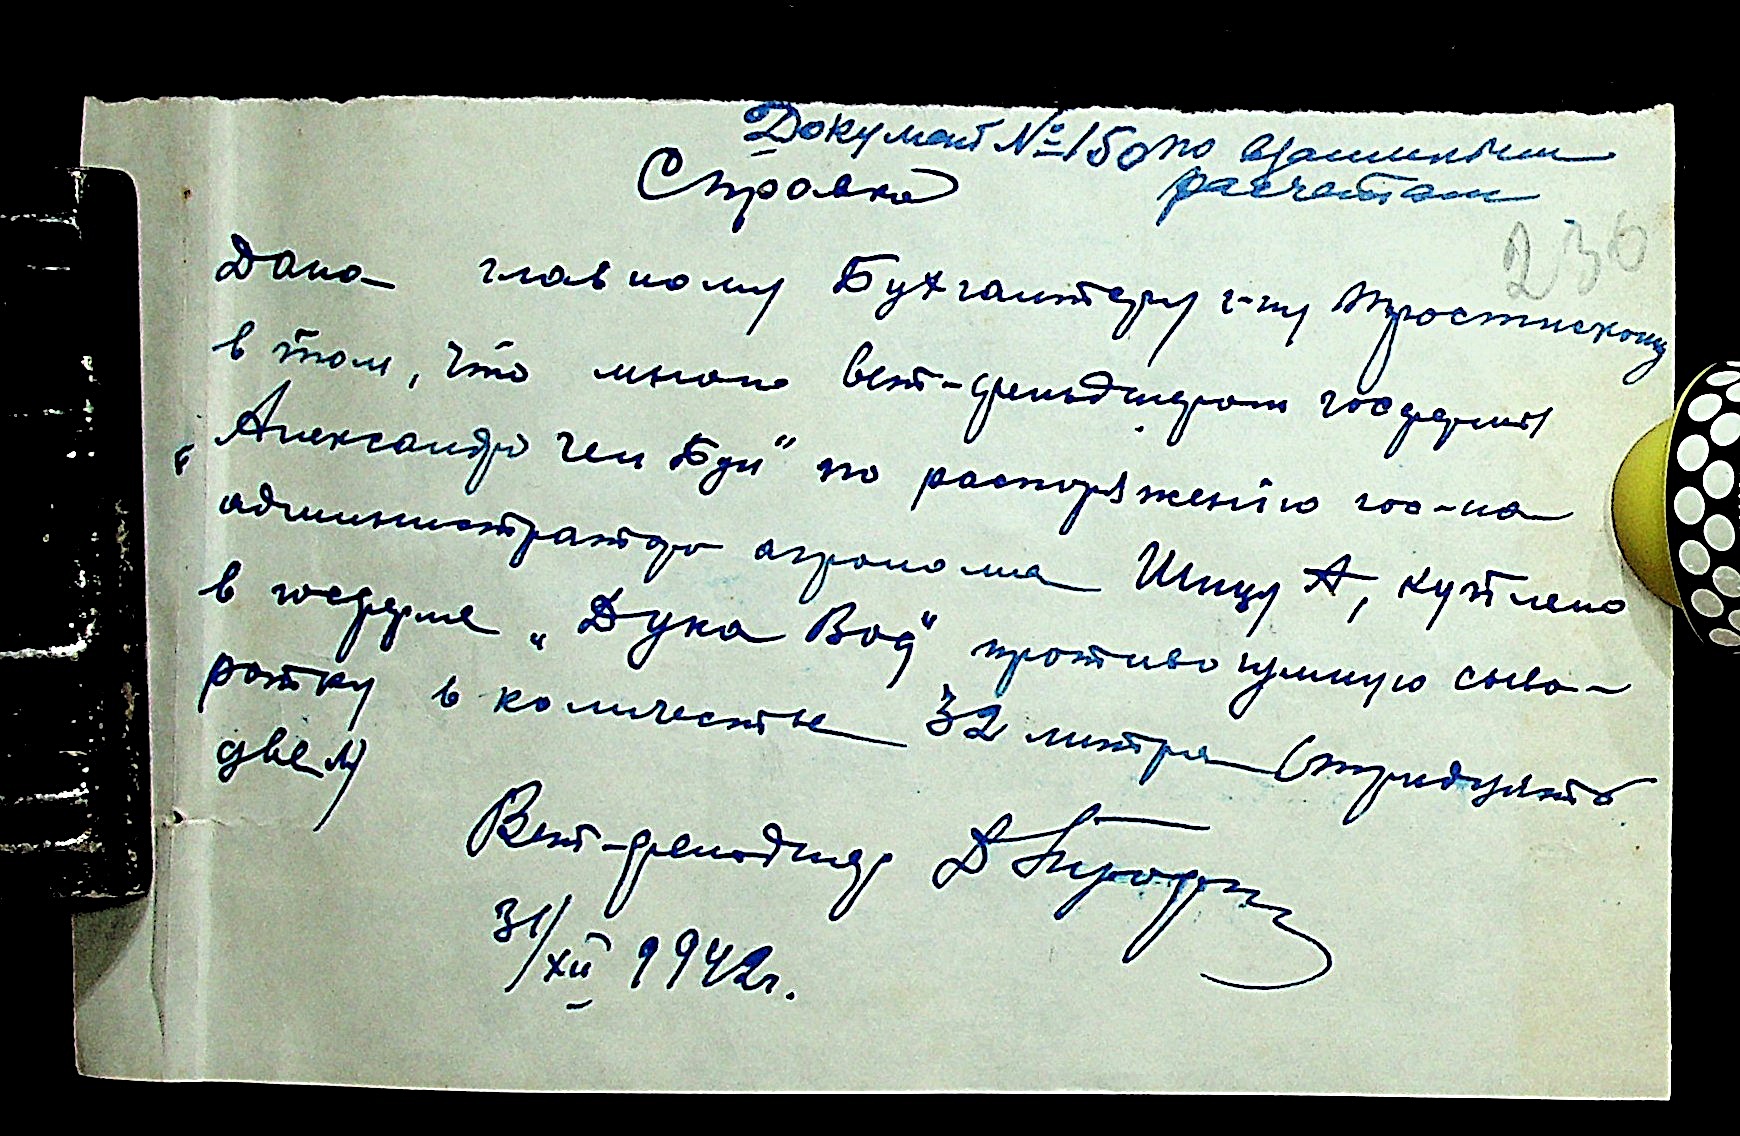 Документ № 150 по взаимным
расчетам
Справка
236
Дана главному Бухгалтеру г-ну Тростинскому
в том, что мною вет-фельдшером госфермы
"Александр чел Бун" по распоряжению гос-на
администратора агронома Шницу А, куплено
в госферме "Дука Водэ" противочумную сыво-
ротку в количестве 32 литра (тридцать
две л)
Вет-фельдшер Д
31/XII 1942г.